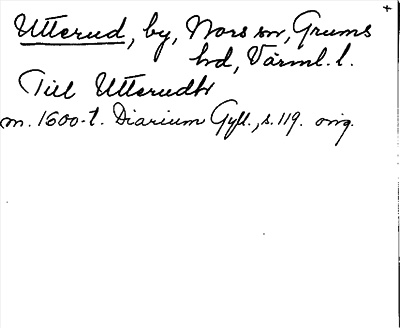 Utterud, by, Nors sn, Grums
hd, Värml. l.
Till Utterudh
m. 1600-t. Diarium Gyll., s. 119. orig.